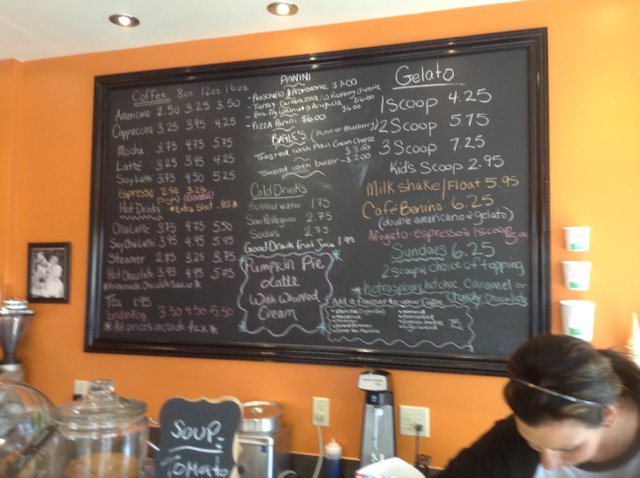 Coffee 8oz 12oz 16oz
Americano 2.50 3.25 3.50
Cappuccino 3.25 3.95 4.25
Mocha 3.75 4.75 5.75
Latte 3.25 3.95 4.25
Soy Latte 3.75 4.50 5.25
Espresso 2.50 3.25
*Extra Shot .85*
Hot Drinks
Chai Latte 3.75 4.75 5.50
Soy Chai Latte 3.95 4.95 5.95
Steamer 2.75 3.25 3.75
Hot Chocolate 3.95 4.95 5.75
*Homemade Chocolate Sauce*
Tea 1.95
London Fog 3.50 4.50 5.50
*All prices include tax*
PANINI
- Prosciutto & Provolone $7.00
- Pizza Panini $6.00
BAGELS (Plain or Blueberry)
Toasted with Plain Cream Cheese
$3.00
Toasted with butter - $2.00
Cold Drinks
Bottled water 1.75
San Pellegrino 2.75
Sodas 2.75
Good Drink Fruit Juice 1.95
Pumpkin Pie
Latte
With Whipped
Cream
Gelato
1 Scoop 4.25
2 Scoop 5.75
3 Scoop 7.25
Kid's Scoop 2.95
Milkshake/Float 5.95
Café Benino 6.25
(double americano & gelato)
Afogato-espresso & 1 scoop
Sundaes 6.25
2 scoops, choice of topping
hot raspberry, hot choc, caramel or
chunky chocolate
Add a flavour to your Coffee
.75
SOUP:
Tomato